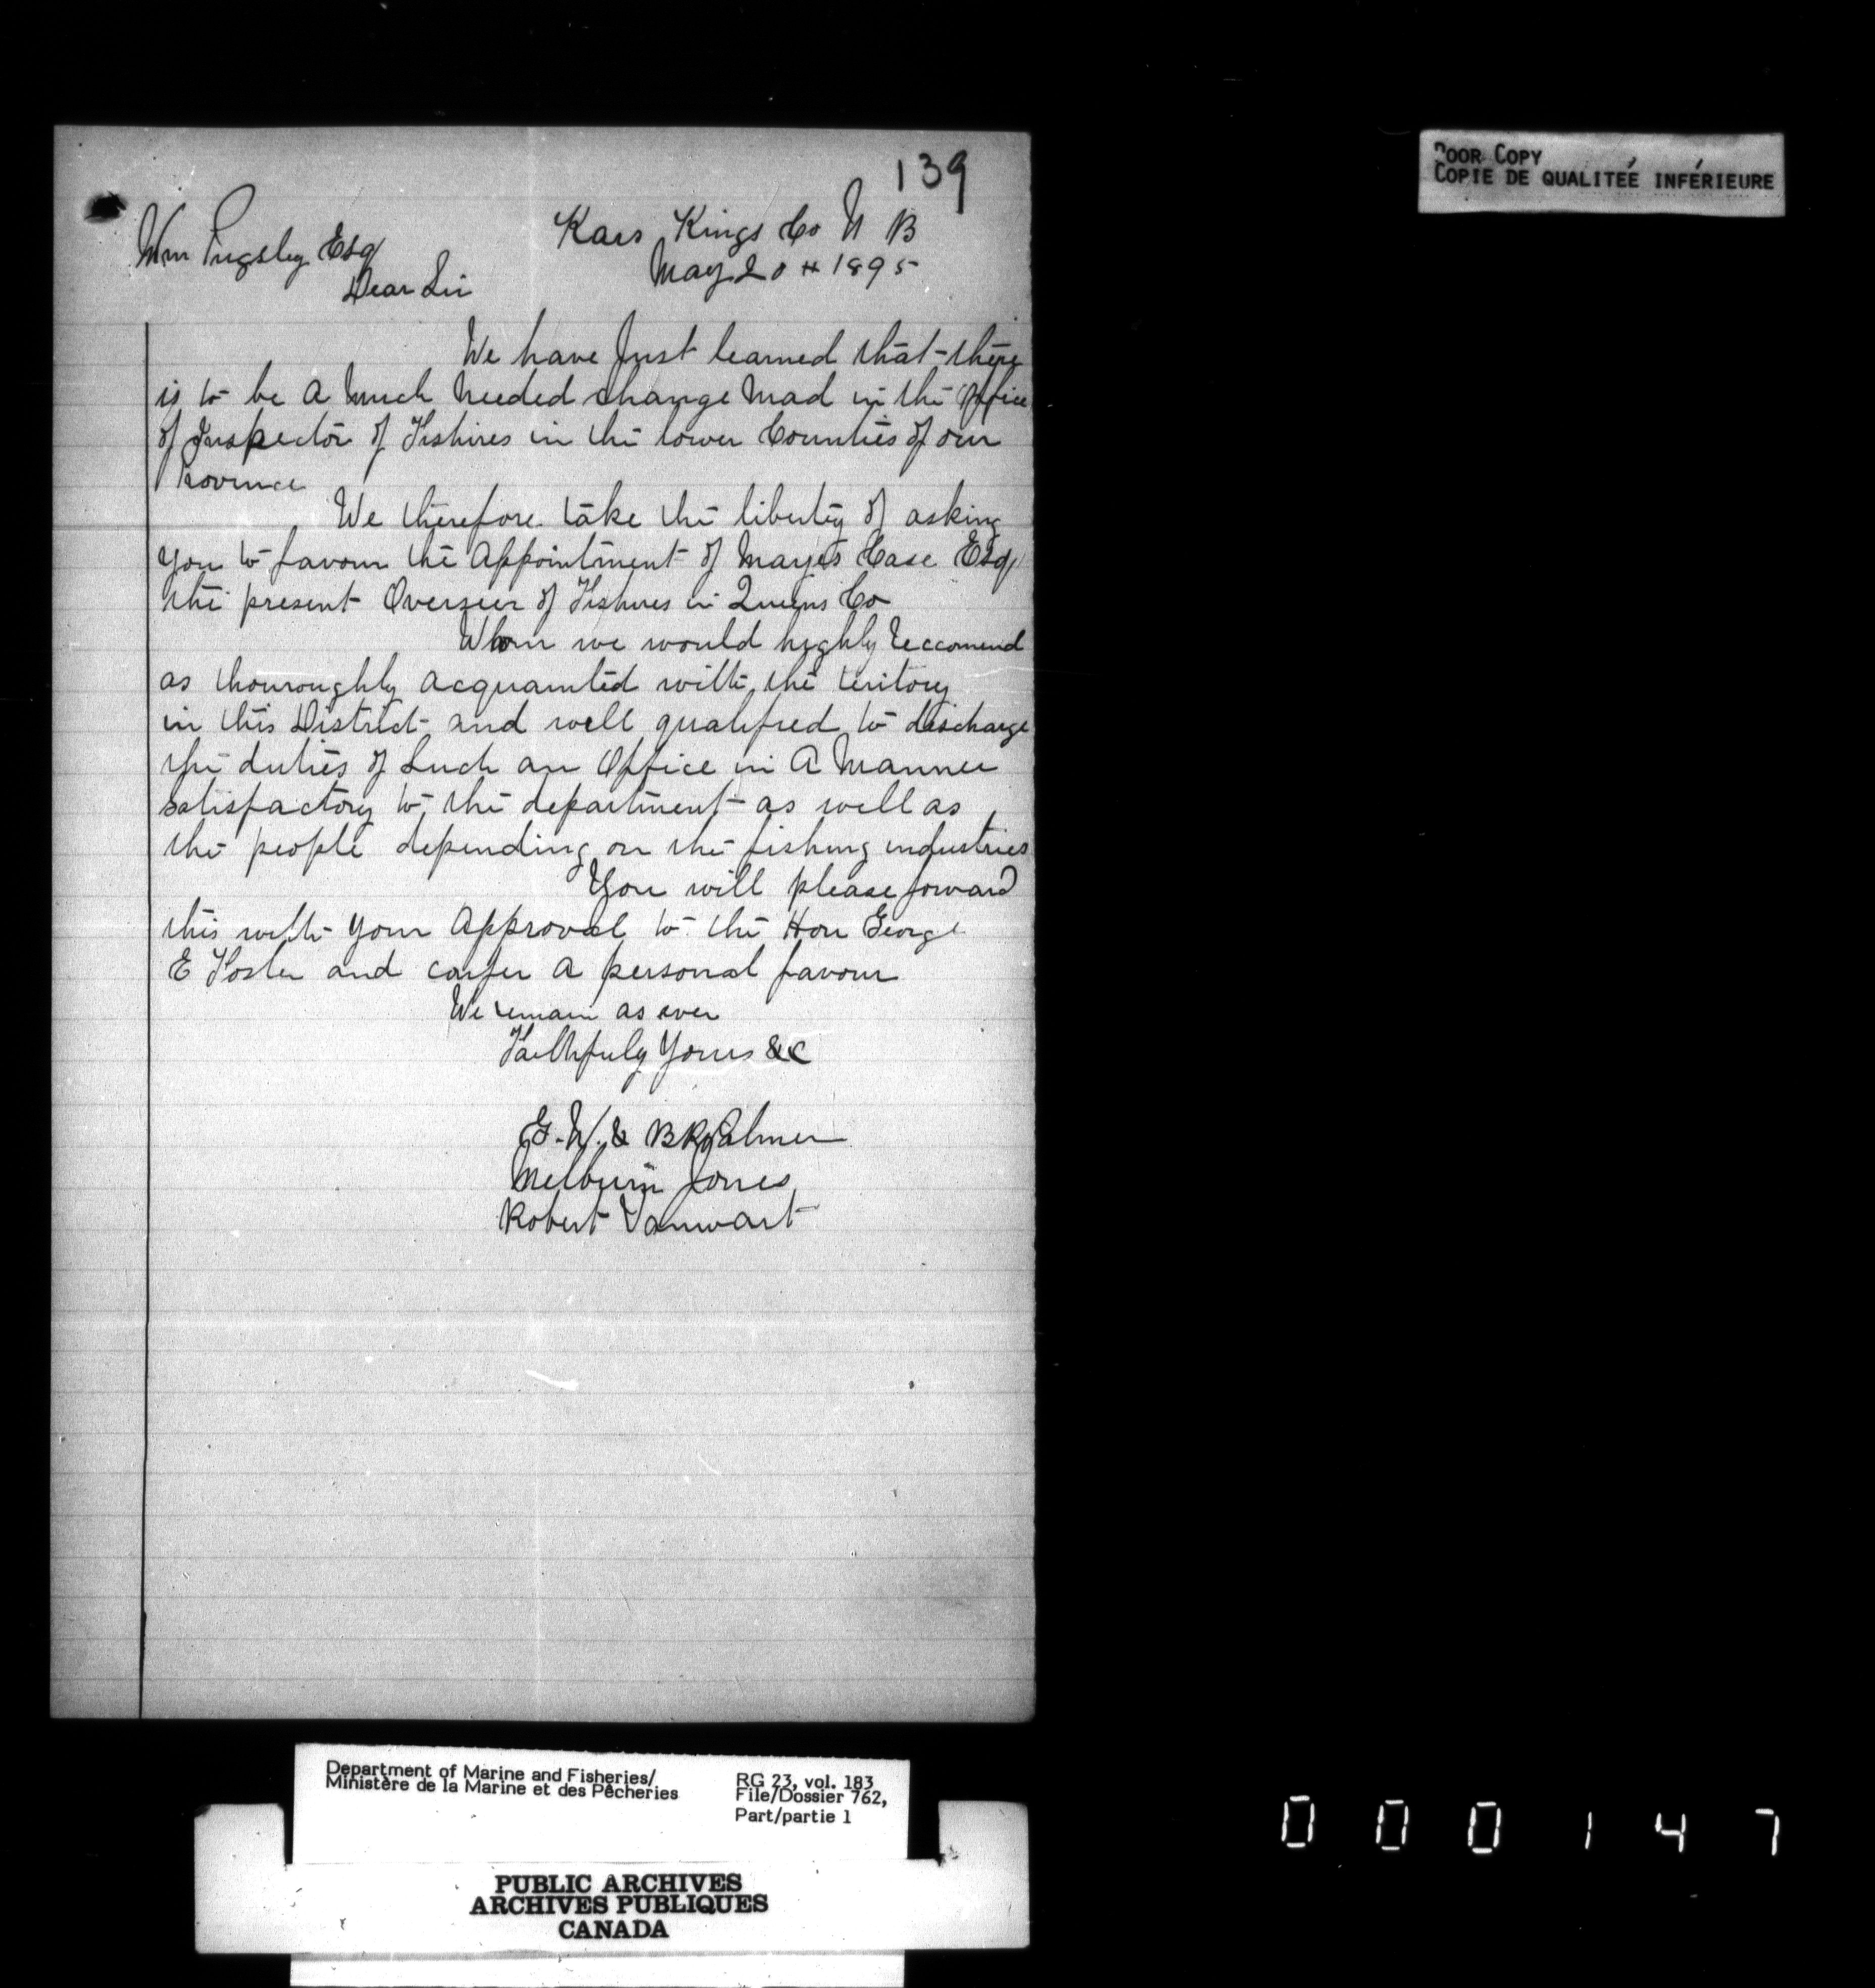 139
Kars Kings Co N B
May 20th 1895
Wm Pugsley Esq
Dear Sir
We have Just learned that there
is to be A Much Needed change Mad in the Office
of Inspector of Fishires in the lower Counties of our
Province
We therefore take the liberty of asking
you to favour the Appointment of Mayes Case Esq
the present Overseer of Fishires in Queens Co
Whom we would highly Reccomend
as thouroughly acquainted with the teritory
in this District and well qualified to discharge
the duties of Such an Office in A Manner
satisfactory to the department as well as
the people depending on the fishing industries
You will please forward
this with your Approval to the Hon George
E Foster and confer A personal favour
We remain as ever
Faithfuly Yours &c
G. W. & B R Palmer
Melburn Jones
Robert Vanwart
POOR COPY
COPIE DE QUALITEÉ INFÉRIEURE
Department of Marine and Fisheries/
Ministère de la Marine et des Pêcheries
RG 23, vol. 183
File/Dossier 762,
Part/partie 1
PUBLIC ARCHIVES
ARCHIVES PUBLIQUES
CANADA
000147